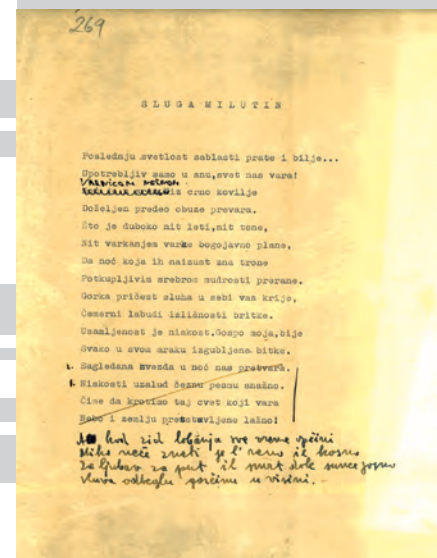 269
SLUGA MILUTIN
Poslednju svetlost sablasti prate i bilje...
Upotrebljiv samo u snu,svet nas vara!
iz crno kovilje
Doželjen predeo obuze prevara.
Što je duboko nit leti,nit tone,
Nit varkanjem varke bogojavno plane,
Da noć koja ih naizust zna trone
Potkupljivim srebrom mudrosti prerane.
Gorka pričest sluha u sebi vam krije,
Čemerni labudi izlišnosti britke.
Usamljenost je niskost.Gospo moja,bije
Svako u svom mraku izgubljene bitke.
Sagledana zvezda u noć nas pretvara.
Niskosti uzalud čeznu pesmu snažno.
Čime da krotimo taj cvet koji vara
Nebo i zemlju pretstavljene lažno!
kod zid lobanja sve vreme
Niko neće znati je l' rano il kosno
Za ljubav za put il smrt dok sunce jasno
odbeglu gorčinu u visini.-